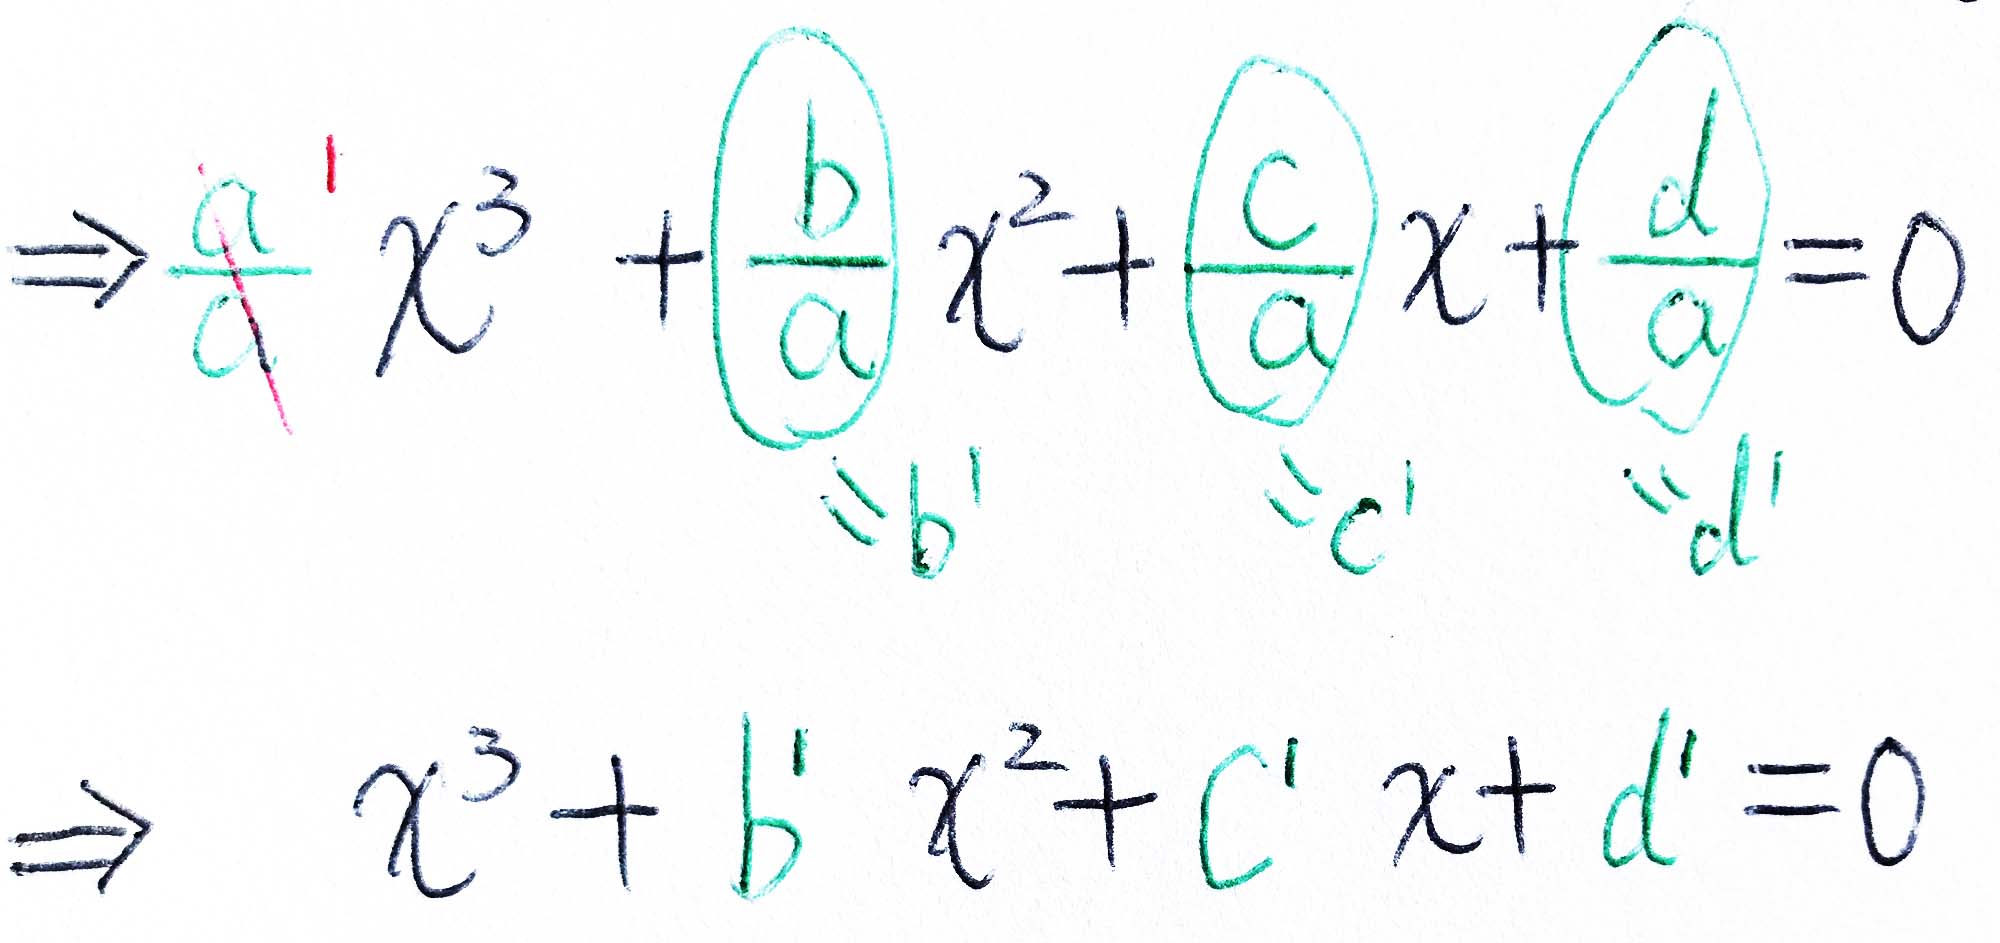 ⇒ a/a 1 x³ + b/a x² + c/a x + d/a = 0
= b' = c' = d'
⇒ x³ + b' x² + c' x + d' = 0